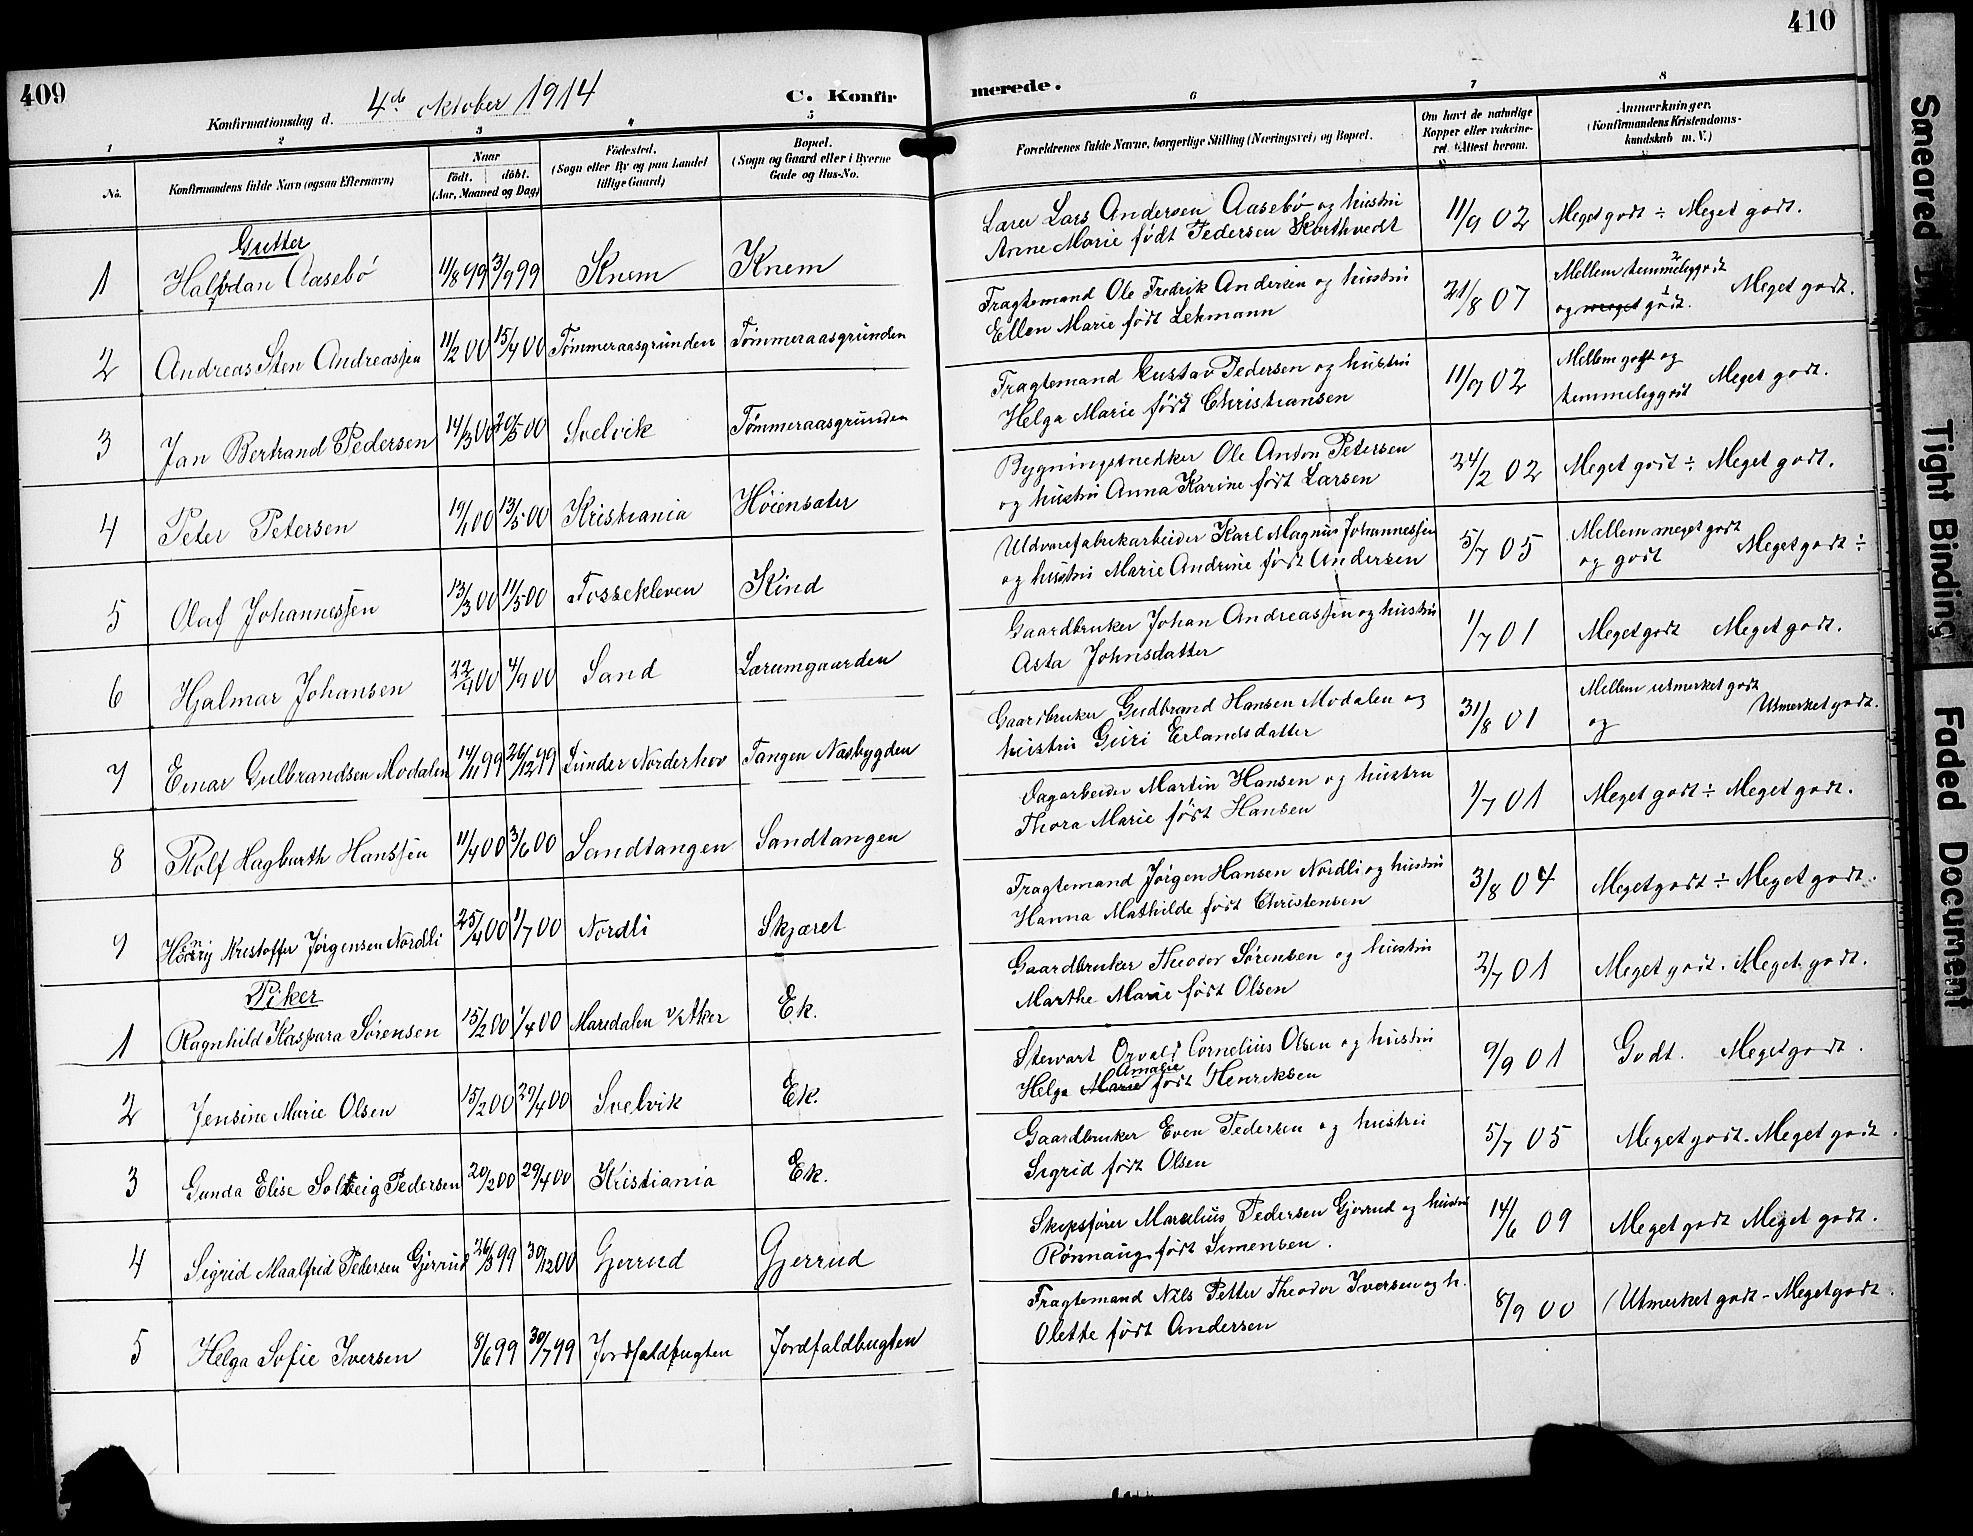 409
Konfirmationsdag d. 4de oktober 1914
C. Konfir
1 2 3 4 5
No.
Konfirmandens fulde Navn (ogsaa Efternavn)
Naar
födt. döbt.
(Aar, Maaned og Dag)
Födested.
(Sogn eller By og paa Landet
tillige Gaard)
Bopæl.
(Sogn og Gaard eller i Byerne
Gade og Hus-No.
Gutter
1 Halvdan Aasebö 11/8 99 3/9 99 Knem Knem
2 Andreas Sten Andreassen 11/2 00 15/4 00 Tømmeraasgrunden Tømmeraasgrunden
3 Jan Bertrand Pedersen 14/3 00 20/5 00 Svelvik Tømmeraasgrunden
4 Peter Petersen 13/5 00 Kristiania Höiensater
5 Oluf Johannessen 13/3 00 11/5 00 Fossekleven Kind
6 Hjalmar Johansen 22/4 00 4/9 00 Sand Lærumgaarden
7 Einar Gulbrandsen Modalen 14/11 99 26/12 99 Lunder Norderhov Tangen Nasbygden
8 Rolf Hagbarth Hanssen 11/4 00 3/6 00 Sandtangen Sandtangen
9 Henry Kristoffer Jörgensen Nordli 25/4 00 1/7 00 Nordli Skjæret
Piker
1 Ragnhild Kaspara Sörensen 15/2 00 1/4 00 Maridalen v/Aker Ek.
2 Jensine Marie Olsen 15/2 00 29/4 00 Svelvik Ek.
3 Gunda Elise Solveig Pedersen 20/2 00 29/4 00 Kristiania Ek.
4 Sigrid Maalfrid Pedersen Gjerrud 26/3 99 30/12 00 Gjerrud Gjerrud
5 Helga Sofie Iversen 8/6 99 30/7 99 Jordfaldbugten Jordfaldbugten
410
merede.
6 7 8
Forældrenes fulde Navne, borgerlige Stilling (Næringsvei) og Bopæl.
Om havt de naturlige
Kopper eller vakcine-
ret. Attest herom.
Anmærkninger.
(Konfirmandens Kristendoms-
kundskab m. V.)
Lærer Lars Andersen Aasebö og hustru
Anne Marie født Pedersen Korthvedt
11/9 02 Meget godt ÷ Meget godt.
Fragtemand Ole Fredrik Andersen og hustru
Ellen Marie født Lehmann
21/8 07 Mellem temmeliggodt 2
og meget godt. 1 Meget godt.
Fragtemand Gustav Pedersen og hustru
Helga Marie født Christiansen
11/9 02 Mellem godt og
temmeliggodt Meget godt.
Bygningssnedker Ole Anton Petersen
og hustru Anna Karine født Larsen
24/2 02 Meget godt ÷ Meget godt.
Uldvarefabrikarbeider Karl Magnus Johannessen
og hustru Marie Andrine født Andersen
5/7 05 Mellem meget godt
og godt Meget godt ÷
Gaardbruker Johan Andreassen og hustru
Asta Johnsdatter
1/7 01 Meget godt Meget godt.
Gaardbruker Gudbrand Hansen Modalen og
hustru Guri Erlandsdatter
31/8 01 Mellem utmerket godt
og Utmerket godt.
Dagarbeider Martin Hansen og hustru
Thora Marie født Hansen
1/7 01 Meget godt ÷ Meget godt.
Fragtemand Jørgen Hansen Nordli og hustru
Hanna Mathilde født Christensen
3/8 04 Meget godt ÷ Meget godt.
Gaardbruker Theodor Sörensen og hustru
Marthe Marie født Olsen
2/7 01 Meget godt. Meget godt.
Stewart Osvald Cornelius Olsen og hustru
Amalie
Helga Marie født Henriksen
9/9 01 Godt. Meget godt.
Gaardbruker Even Pedersen og hustru
Sigrid født Olsen
5/7 05 Meget godt. Meget godt.
Skipsfører Marelius Pedersen Gjerrud og hustru
Rönnaug født Simensen.
14/6 09 Meget godt Meget godt.
Fragtemand Nils Petter Theodor Iversen og h.
Olette født Andersen
8/9 00 Utmerket godt - Meget godt.
Smeared Ink
Tight Binding
Faded Document